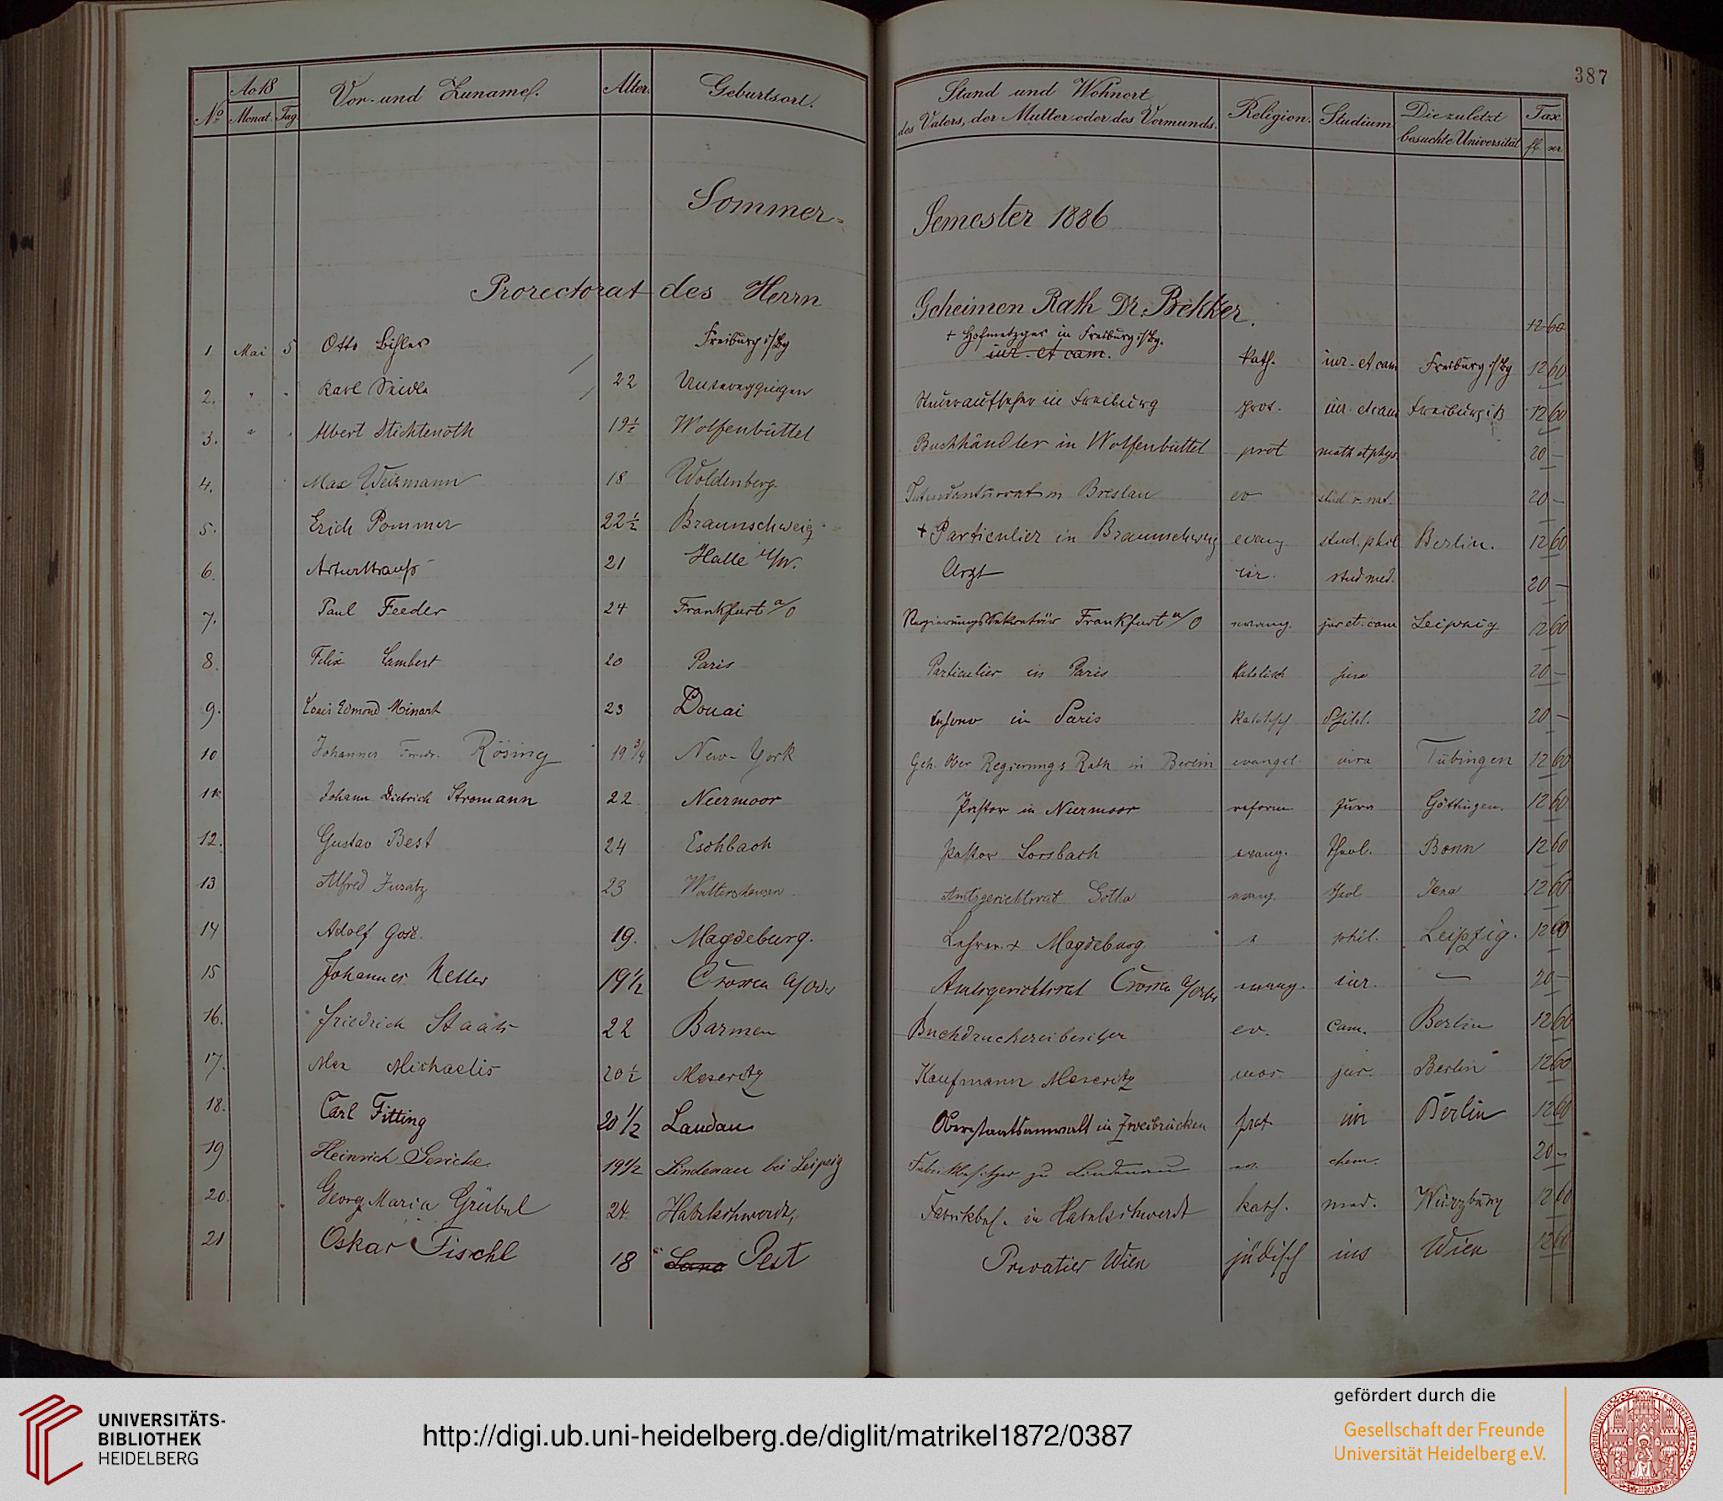 387
No. Ao 18 Monat. Tag. Vor- und Zuname. Alter. Geburtsort. Stand und Wohnort des Vaters, der Mutter oder des Vormunds. Religion. Studium. Die zuletzt besuchte Universität Tax. fl. xr.
Sommer- Semester 1886
Prorectorat des Herrn Geheimen Rath Dr. Bekker.
12 60
1 Mai 5 Otto Freiburg i/Bg + Hofmetzger in Freiburg i/Bg. iur. et cam. kath. iur. et cam Freiburg i/Bg 12 60
2. " " Karl 22 in Freiburg prot. iur. et cam Freiburg i/B 12 60
3. " " Albert Stichtenoth 19½ Wolfenbüttel Buchhändler in Wolfenbüttel prot math et phys. 20 –
4. Max 18 Woldenberg in Breslau ev stud. r. nat. 20 –
5. Erich Pommer 22½ Braunschweig + Particulier in Braunschweig evang stud. phil Berlin. 12 60
6. Artur Strauß 21 Halle i/W. Arzt isr. stud med. 20 –
7. Paul Feeder 24 Frankfurt a/O Regierungssekretär Frankfurt a/O evang. jur et. cam Leipzig 12 60
8. Felix Lambert 20 Paris Particulier in Paris katolisch jura 20 –
9. Louis Edmond Minart 23 Douai in Paris Philol. 20 –
10 Johannes Friedr. Rösing 19 3/4 New-York Geh. Ober Regierungs Rath in Berlin evangel. iura Tübingen 12 60
11 Johann Dietrich Stromann 22 Neermoor Pastor in Neermoor reform. Jura Göttingen. 12 60
12. Gustav Best 24 Eschbach Pastor Lorsbach evang. theol. Bonn 12 60
13 Alfred Juratz 23 Waltershausen Amtsgerichtsrat Gotha evang. Jena 12 60
14 Adolf 19. Magdeburg. Lehrer. + Magdeburg phil. Leipzig. 12 60
15 Johannes Keller 19½ Crossen a/Oder Amtsgerichtsrat Crossen a/Oder evang. iur. — 20 –
16. Friedrich Staats 22 Barmen Buchdruckereibesitzer ev. Cam. Berlin 12 60
17. Max Michaelis 20½ Meseritz Kaufmann Meseritz mos. jur. Berlin 12 60
18. Carl Fitting 20½ Landau Oberstaatsanwalt in Zweibrücken prot. iur Berlin 12 60
19 Heinrich 19½ Lindenau bei Leipzig Fabrikbesitzer zu Lindenau ev. chem. 20 –
20. Georg Maria Grübel 24 Habelschwerdt, Fabrikbes. in Habelschwerdt kath. med. Würzburg 12 60
21 Oskar Tischl 18 Pest Privatier Wien jüdisch ius Wien 12 60
UNIVERSITÄTS-
BIBLIOTHEK
HEIDELBERG
http://digi.ub.uni-heidelberg.de/diglit/matrikel1872/0387
gefördert durch die
Gesellschaft der Freunde
Universität Heidelberg e.V.